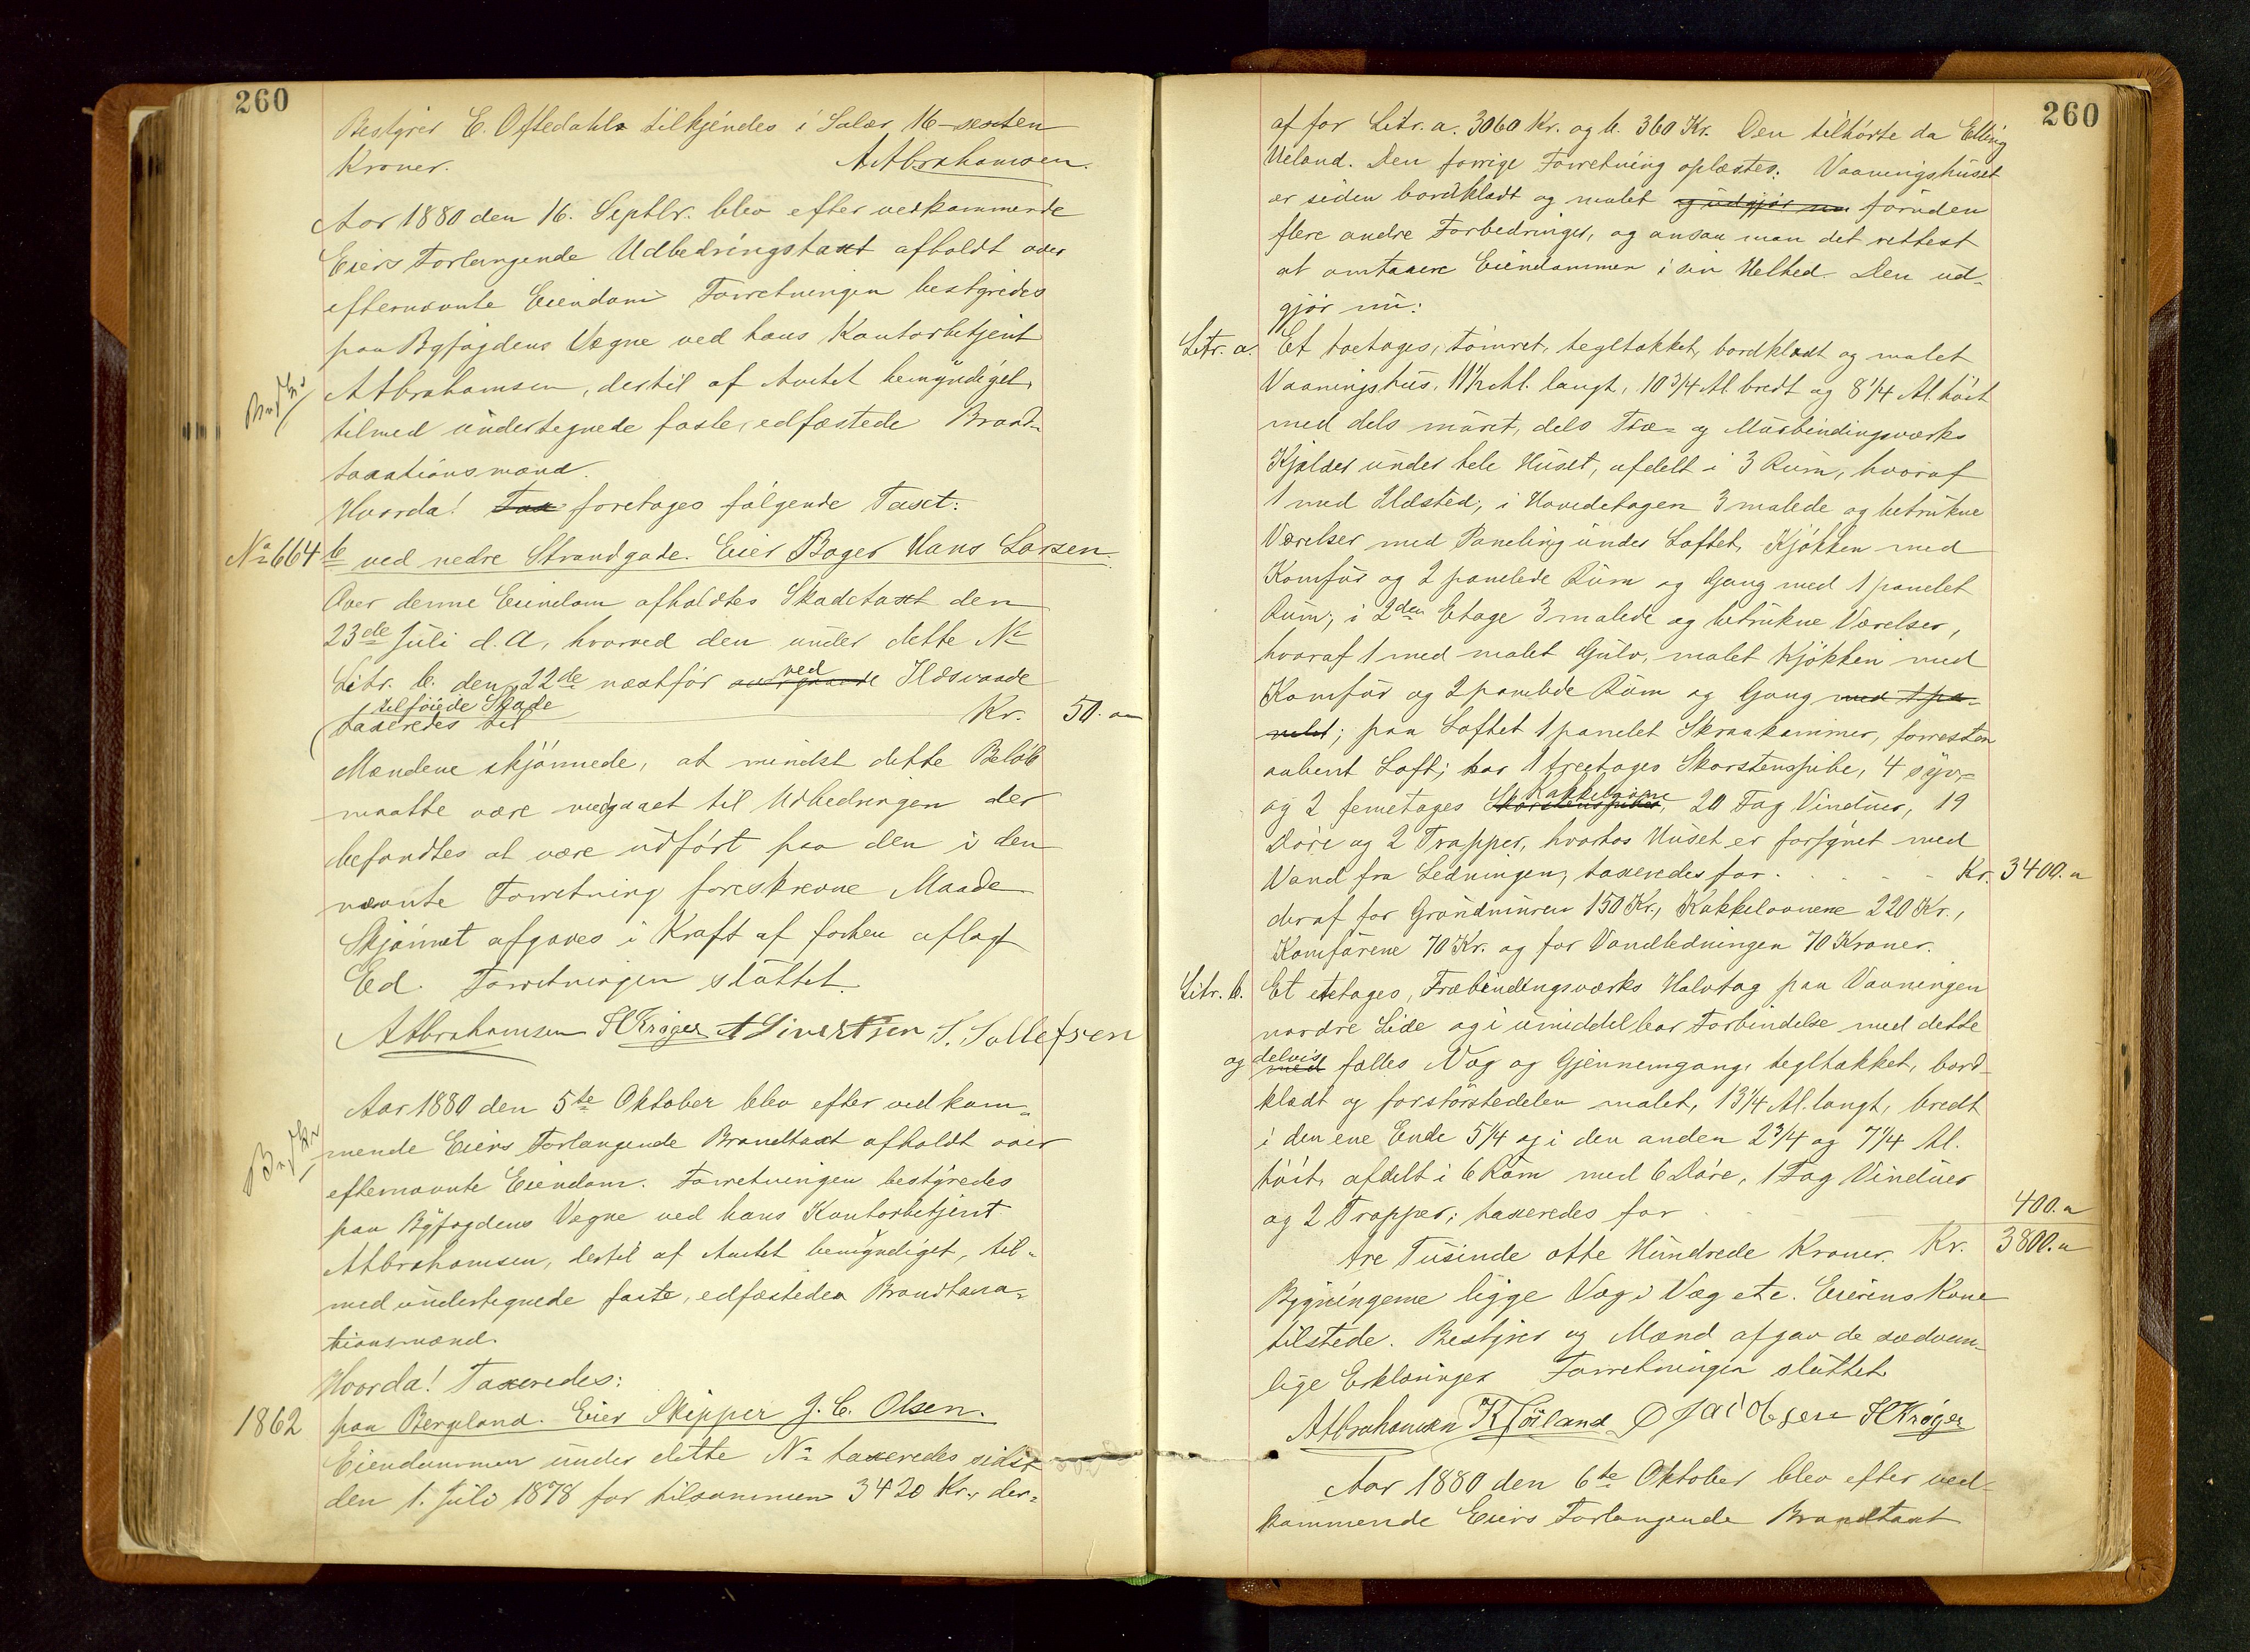 260
Bestyrer E. Oftedahls tilkjendes i Salær 16 - sexten
Kroner. AAbrahamsen.
Aar 1880 den 16. Septbr. blev efter vedkommende
Eiers Forlangende Udbedringstaxt afholdt over
efternævnte Eiendom Forretningen bestyredes
paa Byfogdens Vegne ved hans Kontorbetjent
AAbrahamsen, dertil af Amtet bemyndiget,
tilmed undertegnede faste, edfæstede Brand-
taxationsmænd.
Hvorda! Tax foretages følgende Taxt:
No 664 b ved nedre Strandgade. Eier Bager Hans Larsen.
Over denne Eiendom afholdtes Skadetaxt den
23de Juli d. A, hvorved den under dette No
Litr. b. den 22de næstfør ved Ildsvaade
tilføiede Skade
taxeredes til Kr. 50. "
Mændene skjønnede, at mindst dette Beløb
maatte være medgaaet til Udbedringen der
befandtes at være udført paa den i den
nævnte Forretning foreskrevne Maade
Skjønnet afgaves i Kraft af forhen aflagt
Ed. Forretningen sluttet.
AAbrahamsen HKrøger A Sivertsen S. Tollefsen
Aar 1880 den 5te Oktober blev efter vedkom-
mende Eiers Forlangende Brandtaxt afholdt over
efternævnte Eiendom. Forretningen bestyredes
paa Byfogdens Vegne ved hans Kontorbetjent
AAbrahamsen, dertil af Amtet bemyndiget, til-
med undertegnede faste, edfæstede Brandtaxa-
tionsmænd.
Hvorda! Taxeredes:
1862 paa Bergeland. Eier Skipper J. C. Olsen.
Eiendommen under dette No taxeredes sidst
den 1. Juli 1878 for tilsammen 3420 Kr., der-
260
af for Litr. a. 3060 Kr. og b. 360 Kr. Den tilhørte da Elling
Ueland. Den forrige Forretning oplæstes. Vaaningshuset
er siden bordklædt og malet og udgjør nu foruden
flere andre Forbedringer, og ansaa man det rettest
at omtaxere Eiendommen i sin Helhed. Den ud-
gjør nu:
Litr. a. Et toetages, tømret, tegltækket, bordklædt og malet
Vaaningshus, 11½ Al. langt, 10 3/4 Al. bredt og 8 1/4 Al. høit
med dels muret, dels Træ- og Murbindingsværks
Kjelder under hele Huset, afdelt i 3 Rum, hvoraf
1 med Ildsted; i Hovedetagen 3 malede og betrukne
Værelser med Paneling under Loftet, Kjøkken med
Komfur og 2 panelede Rum og Gang med 1 panelet
Rum; i 2den Etage 3 malede og betrukne Værelser,
hvoraf 1 med malet Gulv, malet Kjøkken med
Komfur og 2 panelede Rum og Gang med 1 pa-
nelet; paa Loftet 1 panelet Skraakammer, forresten
aabent Loft; har 1 treetages Skorstenspibe, 4 syv-
og 2 femetages Skorstenspiber Kakkelovne, 20 Fag Vinduer, 19
Døre og 2 Trapper, hvorhos Huset er forsynet med
Vand fra Ledningen, taxeredes for Kr. 3400. "
deraf for Grundmuren 150 Kr., Kakkelovnene 220 Kr.,
Komfurene 70 Kr. og for Vandledningen 70 Kroner.
Litr. b. Et etetages, Træbindingsværks Halvtag paa Vaaningen
nordre Side og i umiddelbar Forbindelse med dette
og delvis med fælles Væg og Gjennemgang, tegltækket, bord-
klædt og forstørstedelen malet, 13 1/4 Al. langt, bredt
i den ene Ende 5 1/4 og i den anden 2 3/4 og 7 1/4 Al.
høit, afdelt i 6 Rum med 6 Døre, 1 Fag Vinduer
og 2 Trapper; taxeredes for 400. "
tre Tusinde otte Hundrede Kroner. Kr. 3800. "
Bygningerne ligge Væg i Væg etc. Eierens Kone
tilstede. Bestyrer og Mænd afgav de sædvan-
lige Erklæringer Forretningen sluttet
AAbrahamsen HKrøger
Aar 1880 den 6te Oktober blev efter ved-
kommende Eiers Forlangende Brandtaxt